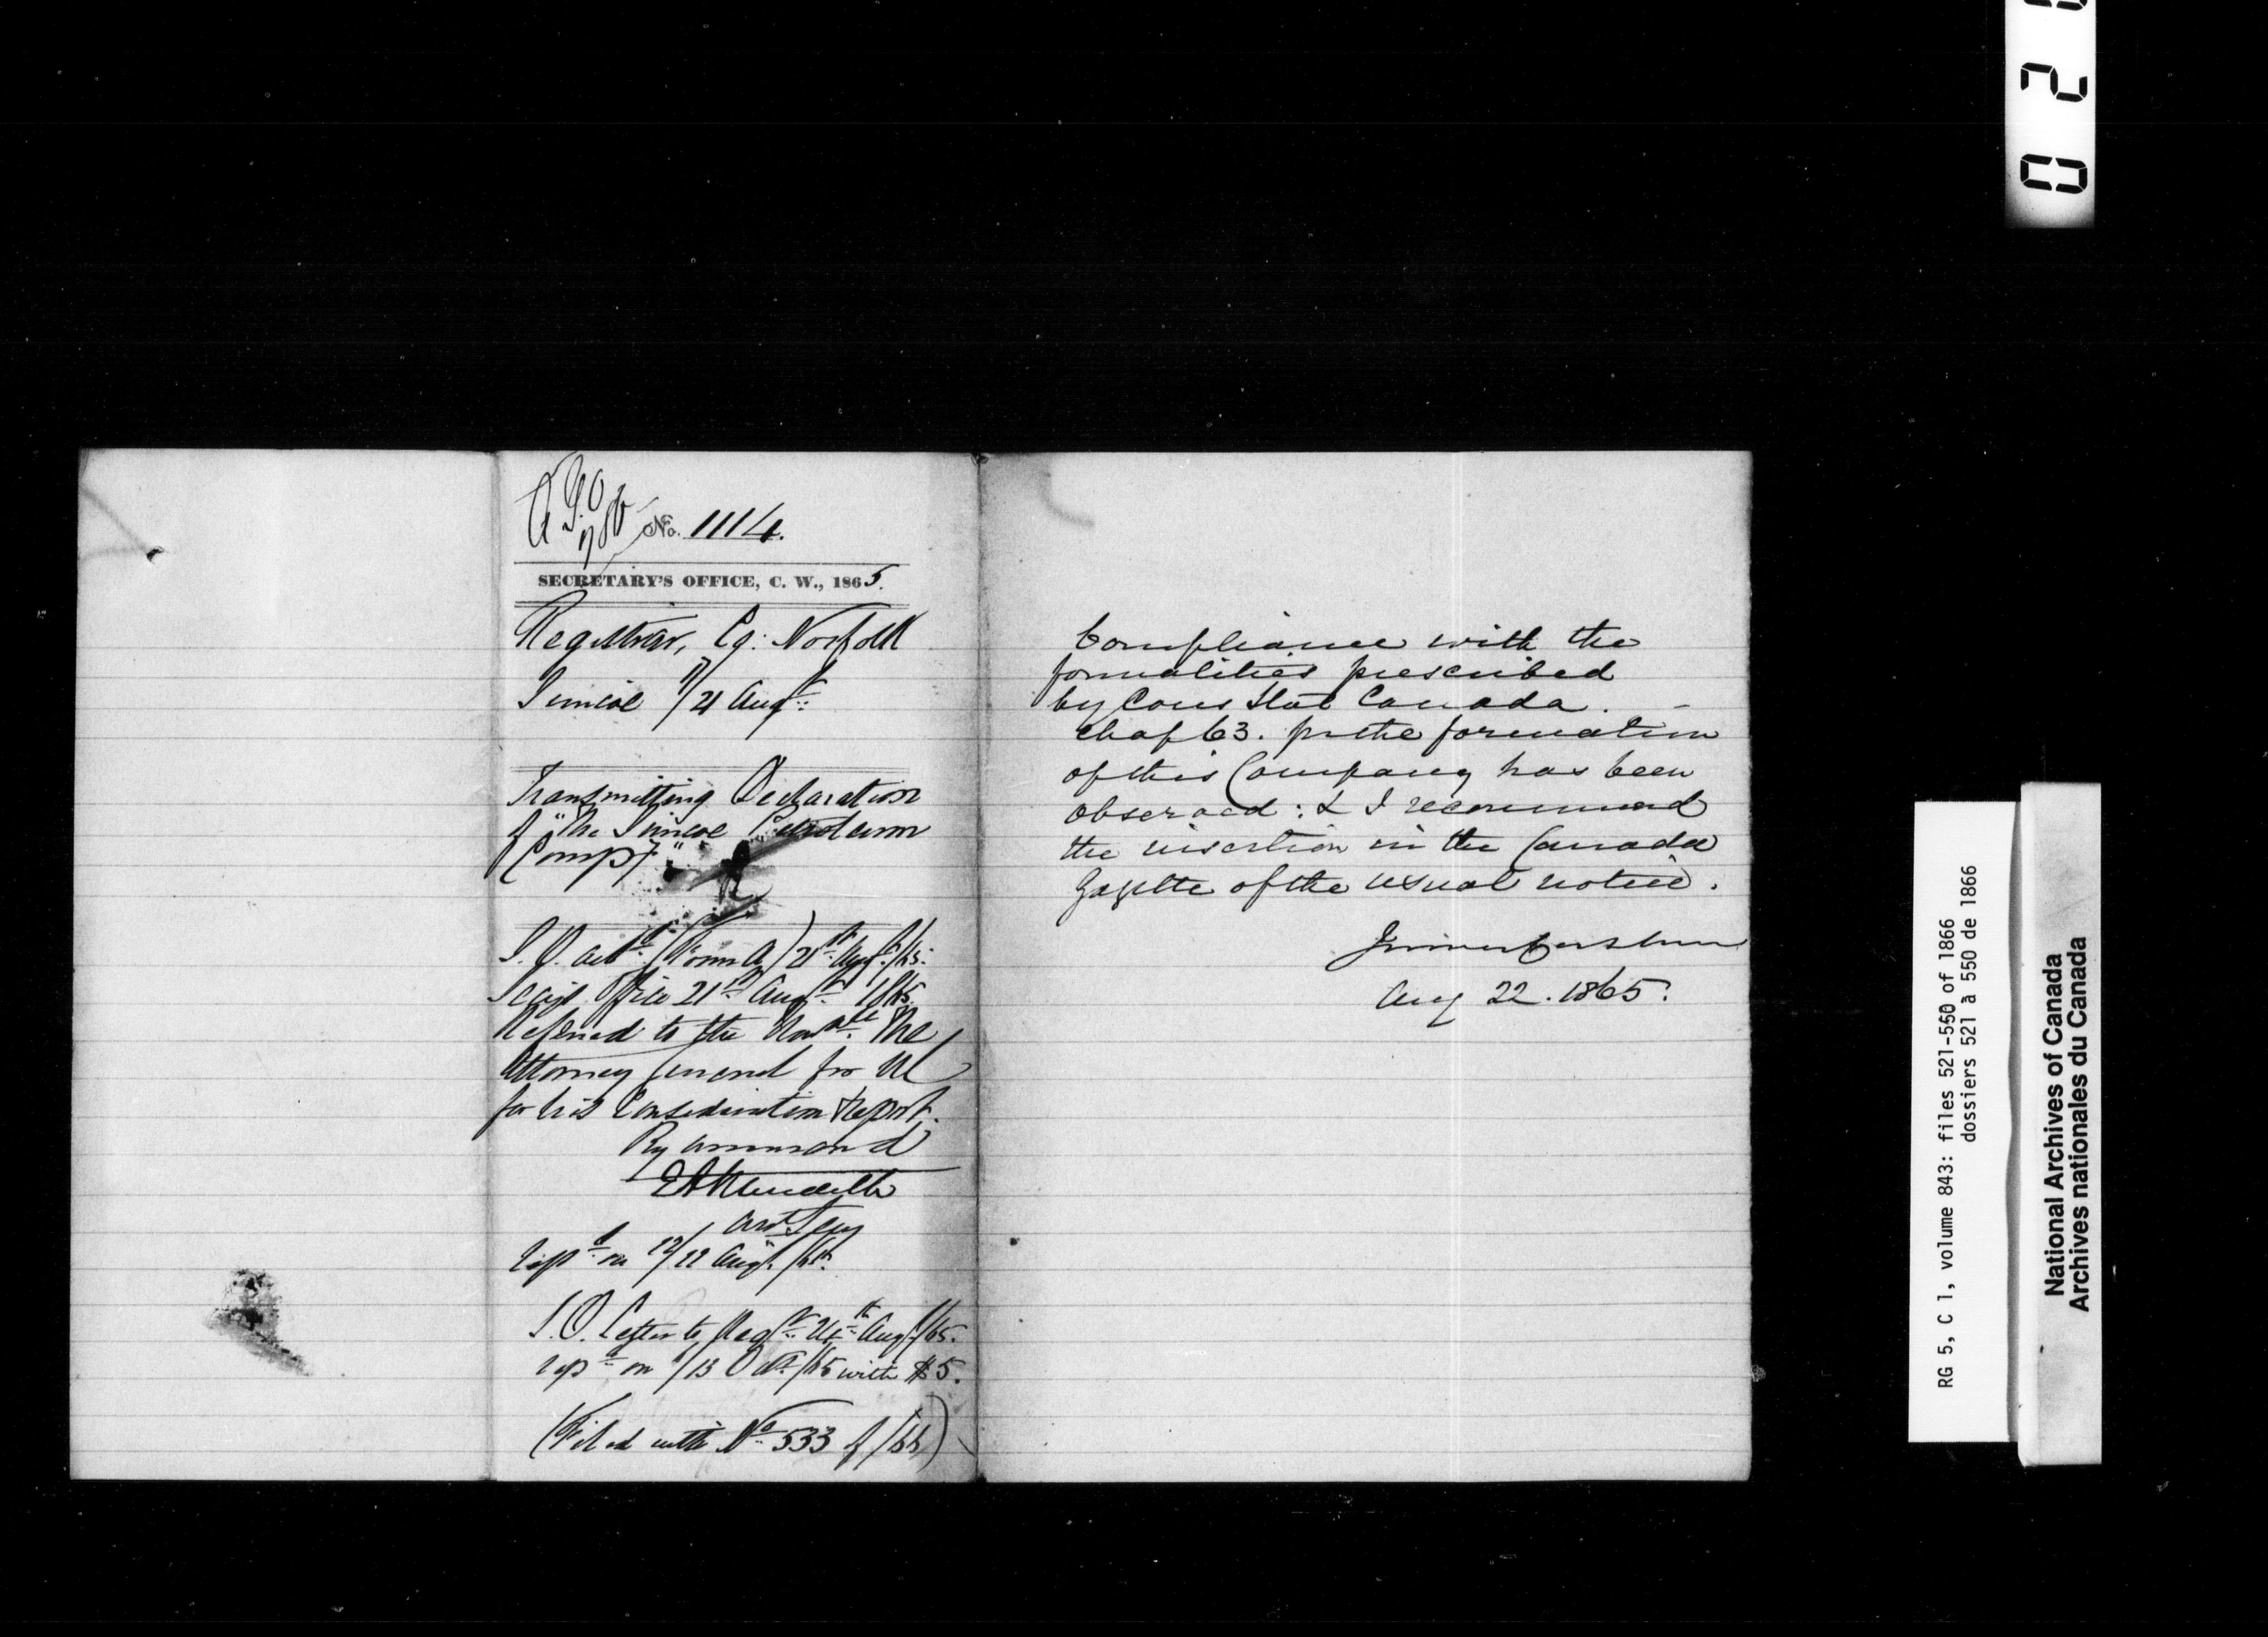 A G O
786
No. 1114.
SECRETARY'S OFFICE, C. W., 1865.
Registrar, Co: Norfolk
Simcoe /21 Augt
Transmitting Declaration
of "The Simcoe Petroleum
Compy"
S. O. ackd (Form A) 21st Augt /65.
Secys Office 21st Augt 1865.
Referred to the Honble The
Attorney General for UC
for his Consideration & report.
By command
E A Meredith
Asst Secy
Repd on 22 Augt /65.
S. O. Letter to Regr 24th Augt /65.
repd on /13 Oct /65 with $5.
(Filed with No 533 of /66)
Compliance with the
formalities prescribed
by Cons Stat Canada.
chap 63. for the formation
of this Company has been
observed: & I recommend
the insertion in the Canada
Gazette of the usual notice.
Aug 22. 1865.
0 2
RG 5, C 1, volume 843: files 521-550 of 1866
dossiers 521 à 550 de 1866
National Archives of Canada
Archives nationales du Canada